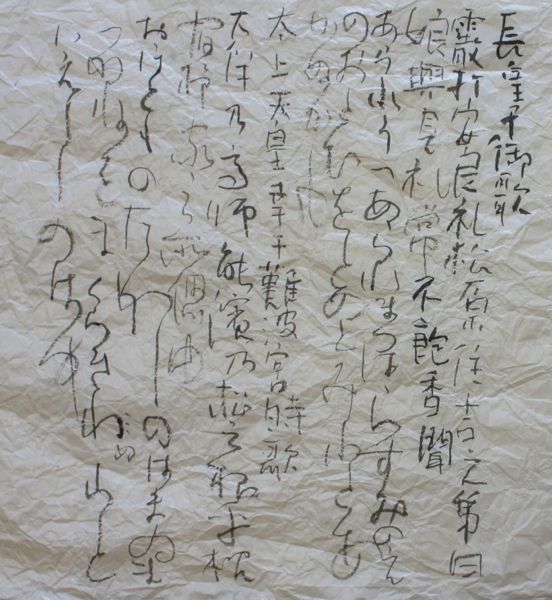 長皇子御歌
霰打安良礼松原住吉之弟日
娘與見礼常不飽香聞
あられうつあられまつはらすみのえ
のおとひをとめとみれとあ
かぬかも
太上天皇幸于難波宮時歌
大伴乃高師能濱乃松之根乎枕
宿杼家之所偲由
おほとものたかしのはまのま
つかねをまくらきぬれと
いへししのはゆ